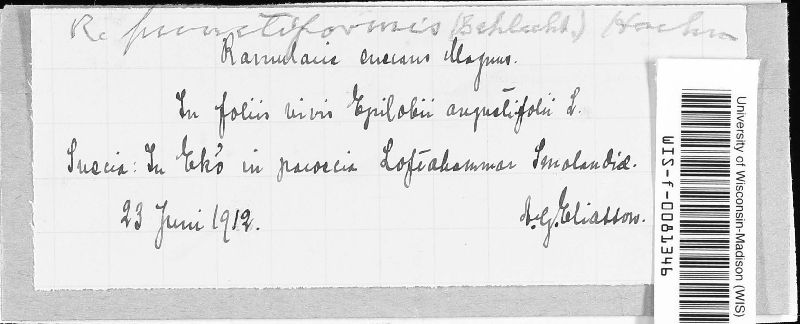 R. punctiformis (Schlecht.) Hoehn
Ramularia cuneans Magnus.
In foliis vivis Epilobii angustifolii L.
Suecia: In Ekö in paroecia Loftahammar Smolandiæ.
23 Juni 1912.
A. G. Eliasson.
University of Wisconsin-Madison (WIS)
WIS-f-0081346